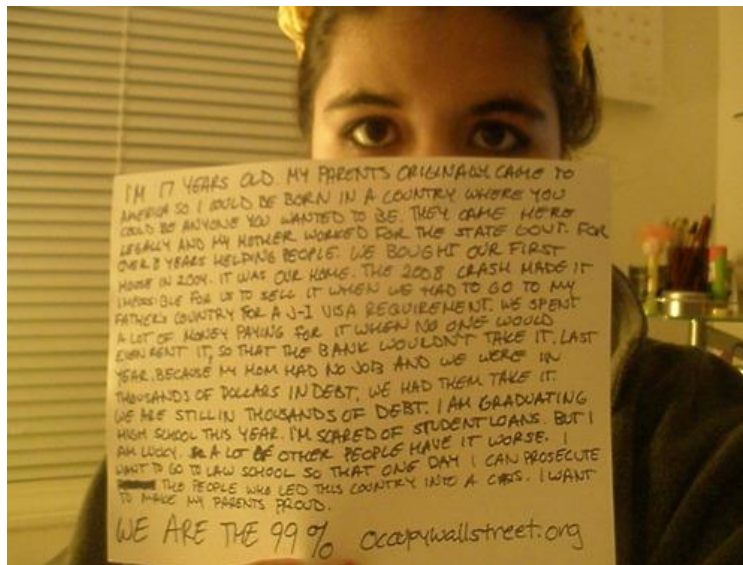 I'M 17 YEARS OLD. MY PARENTS ORIGINALLY CAME TO
AMERICA SO I COULD BE BORN IN A COUNTRY WHERE YOU
COULD BE ANYONE YOU WANTED TO BE. THEY CAME HERE
LEGALLY AND MY MOTHER WORKED FOR THE STATE GOVT. FOR
OVER 8 YEARS HELPING PEOPLE. WE BOUGHT OUR FIRST
HOUSE IN 2004. IT WAS OUR HOME. THE 2008 CRASH MADE IT
IMPOSSIBLE FOR US TO SELL IT WHEN WE HAD TO GO TO MY
FATHER'S COUNTRY FOR A J-1 VISA REQUIREMENT. WE SPENT
A LOT OF MONEY PAYING FOR IT WHEN NO ONE WOULD
EVEN RENT IT, SO THAT THE BANK WOULDN'T TAKE IT. LAST
YEAR, BECAUSE MY MOM HAD NO JOB AND WE WERE IN
THOUSANDS OF DOLLARS IN DEBT, WE HAD THEM TAKE IT.
WE ARE STILL IN THOUSANDS OF DEBT. I AM GRADUATING
HIGH SCHOOL THIS YEAR. I'M SCARED OF STUDENT LOANS. BUT I
AM LUCKY. A LOT OF OTHER PEOPLE HAVE IT WORSE. I
WANT TO GO TO LAW SCHOOL SO THAT ONE DAY I CAN PROSECUTE
THE PEOPLE WHO LED THIS COUNTRY INTO A . I WANT
TO MAKE MY PARENTS PROUD.
WE ARE THE 99% occupywallstreet.org